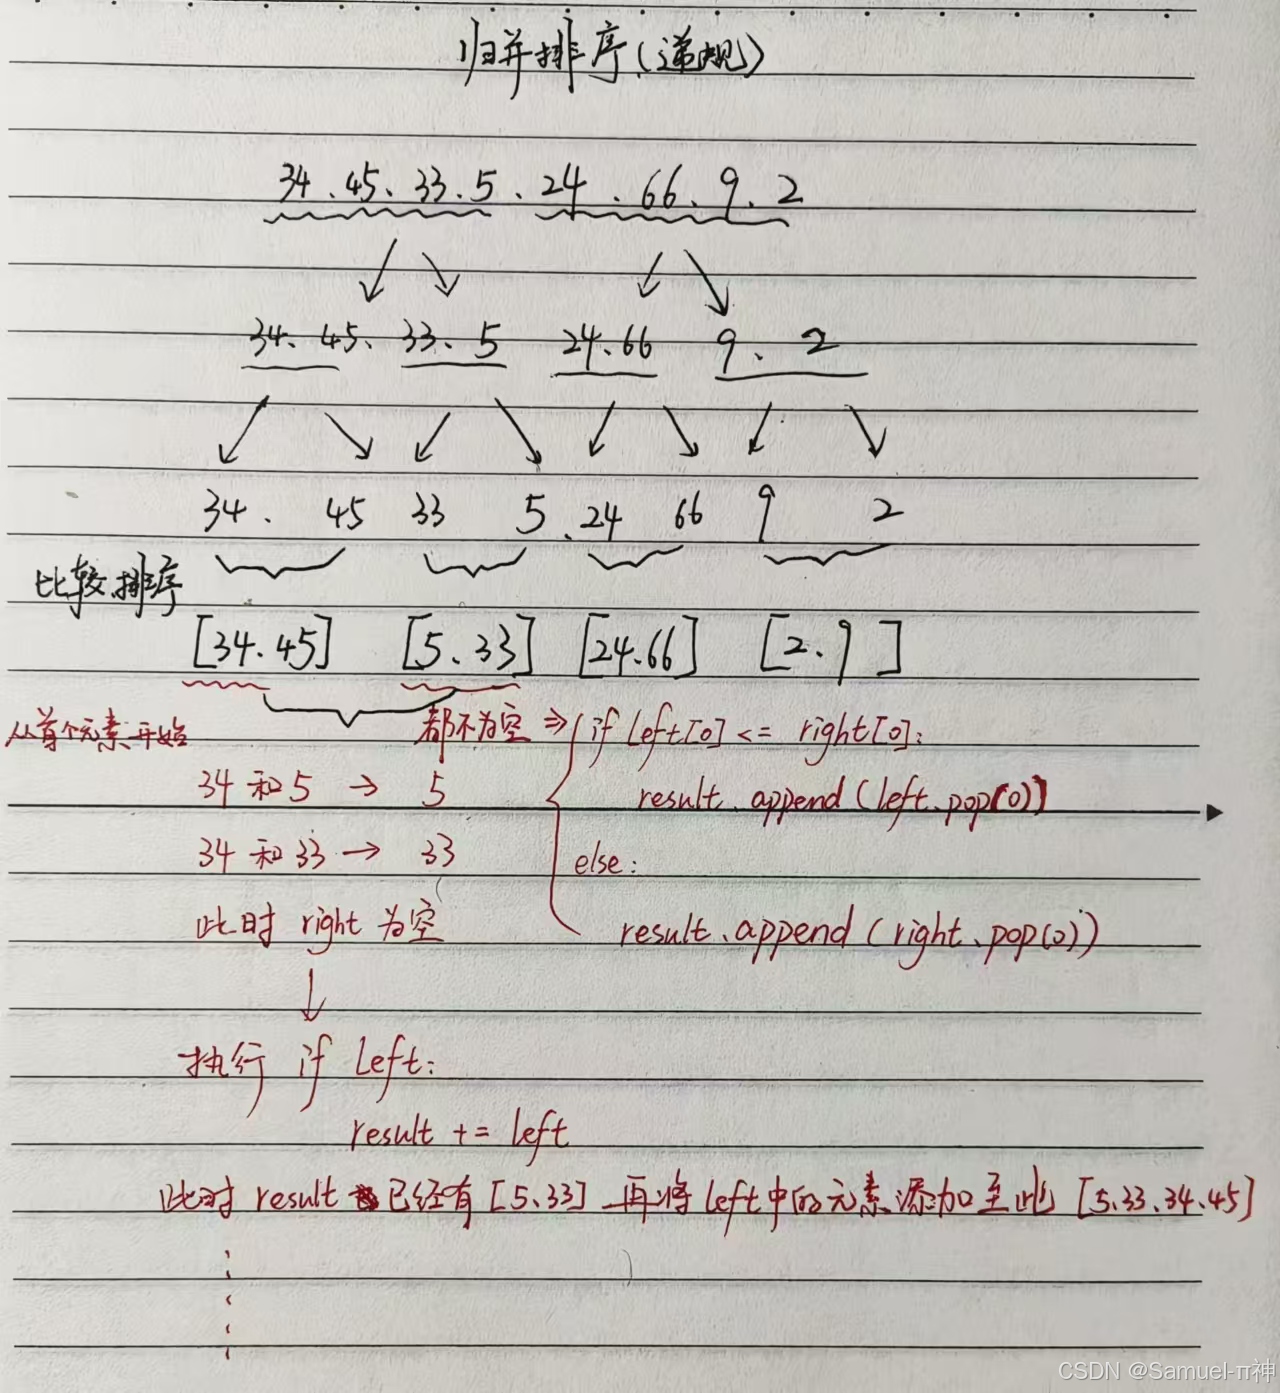 归并排序(递规)
34、45、33、5、24、66、9、2
34、45、33、5 24、66 9、2
34、 45 33 5、24 66 9 2
比较排序
[34、45] [5、33] [24、66] [2、9]
从首个元素开始 都不为空 ⇒ if left[0] <= right[0]:
34 和 5 → 5 result.append(left.pop(0))
34 和 33 → 33 else:
此时 right 为空 result.append(right.pop(0))
↓
执行 if left:
result += left
此时 result 已经有 [5、33] 再将 left 中的元素添加至此 [5、33、34、45]
CSDN @Samuel-π神